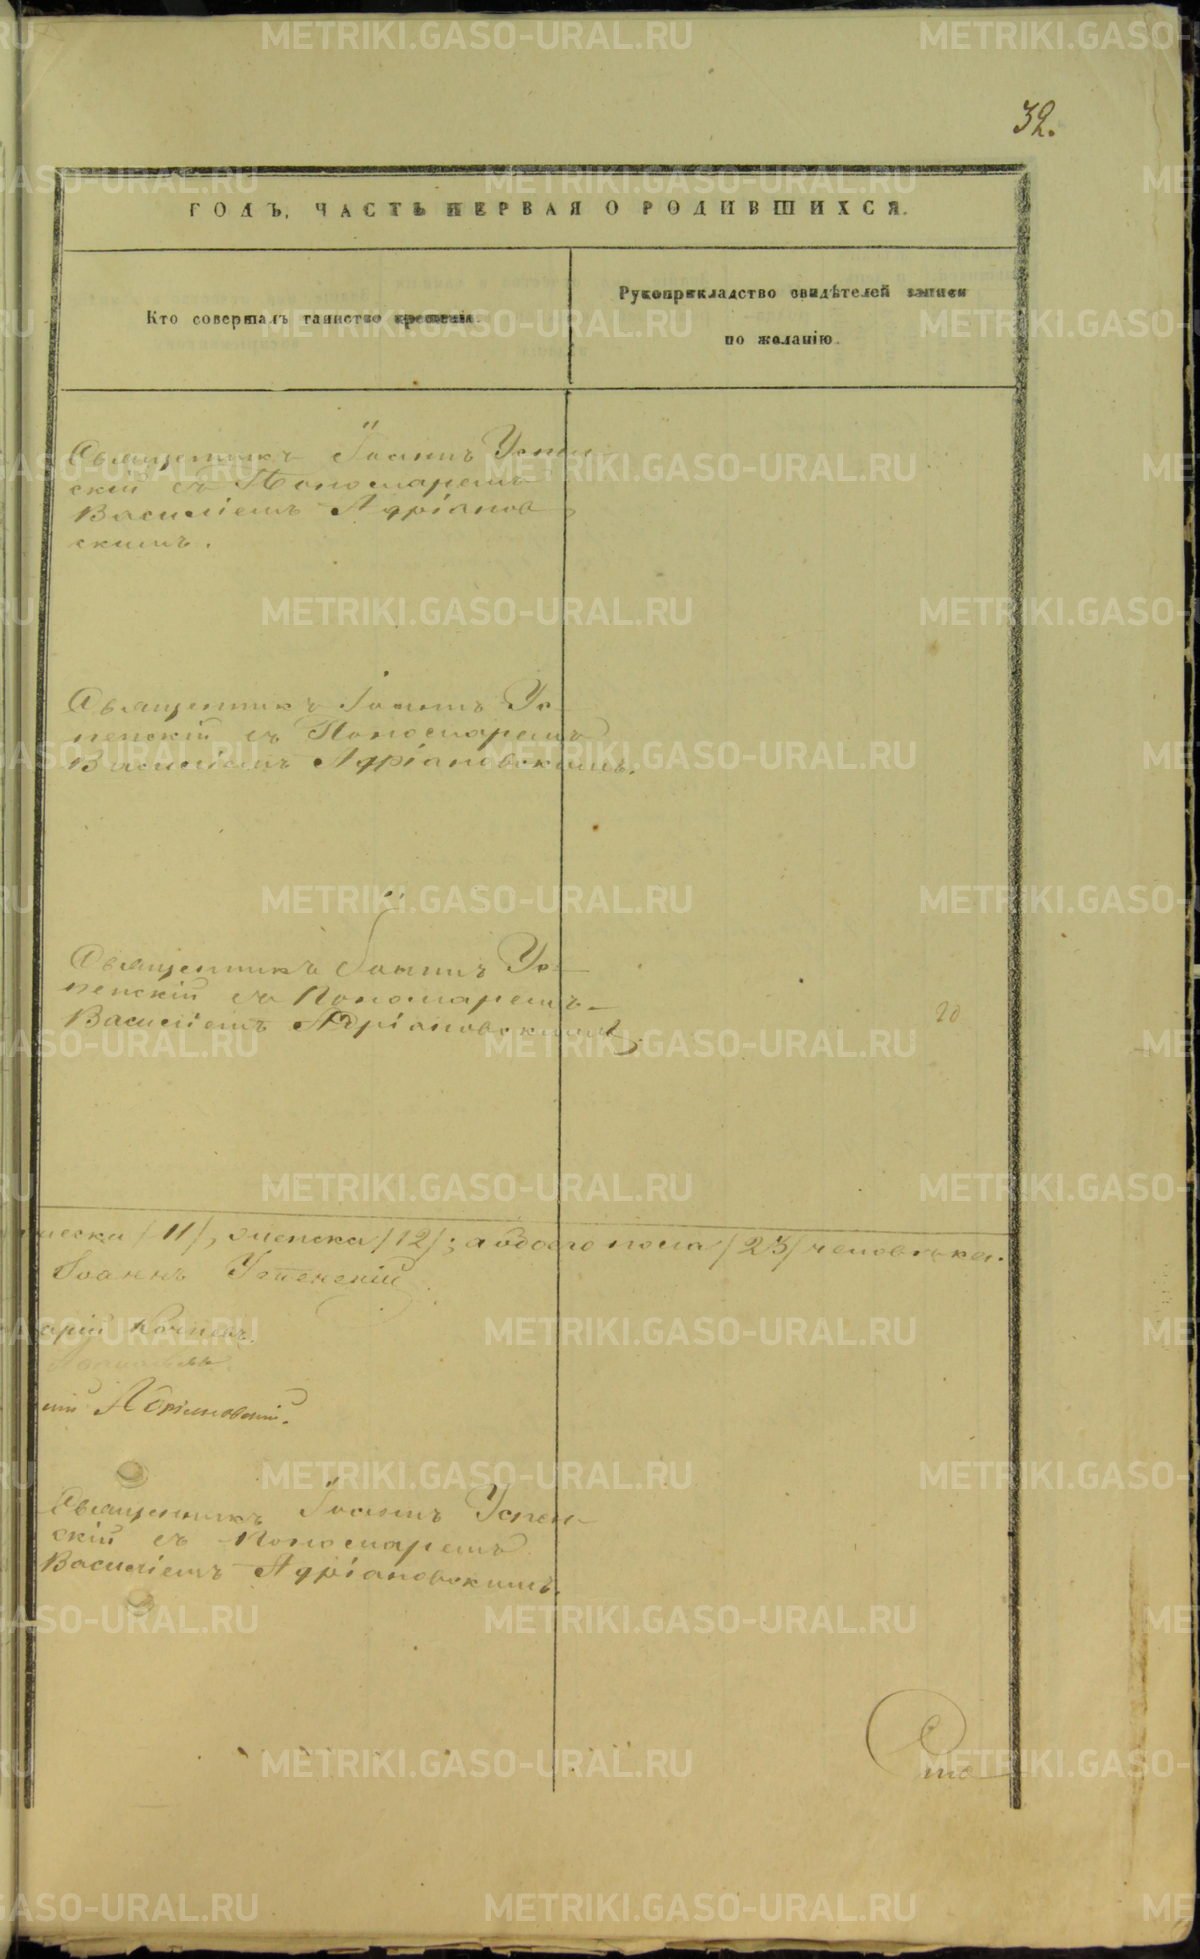 32.
ГОДЪ, ЧАСТЬ ПЕРВАЯ О РОДИВШИХСЯ.
Кто совершалъ таинство крещенія.
Рукоприкладство свидѣтелей записи
по желанію.
Священникъ Іоаннъ Успен-
скій съ Пономаремъ
Василіемъ Адріанов
скимъ.
Священникъ Іоаннъ Ус-
пенскій съ Пономаремъ
Василіемъ Адріановскимъ.
Священникъ Іоаннъ Ус-
пенскій съ Пономаремъ
Василіемъ Адріановскимъ.
20
ческа /11/, женска /12/; а обоего пола /23/ человѣка.
Іоаннъ Успенскій
арій
ній Адріановскій.
Священникъ Іоаннъ Успен-
скій съ Пономаремъ
Василіемъ Адріановскимъ.
METRIKI.GASO-URAL.RU